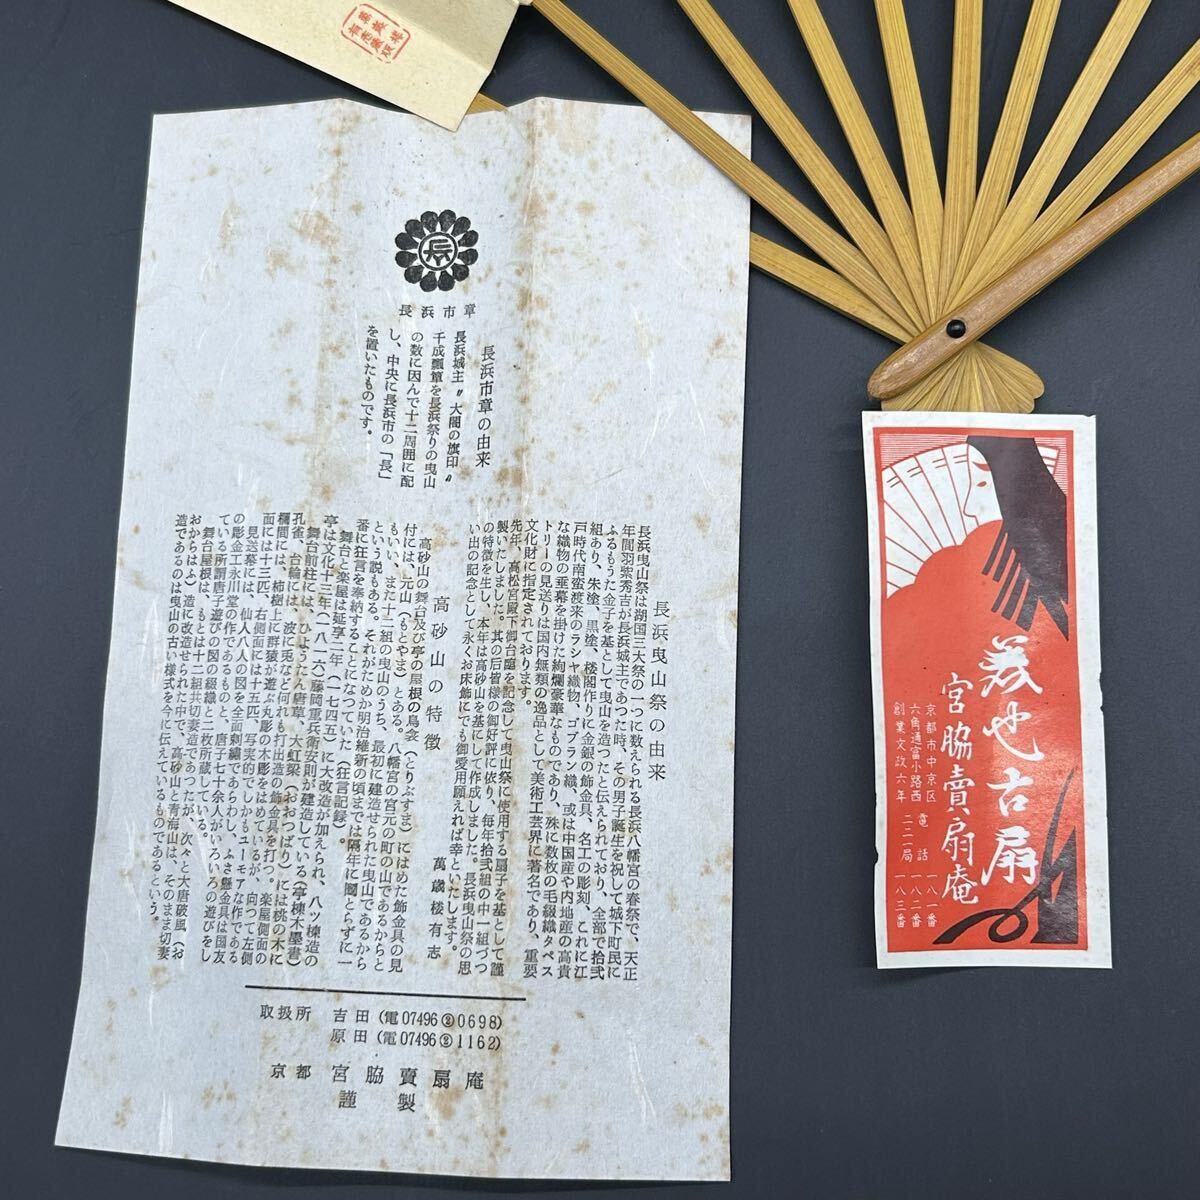 長浜市章
長浜市章の由来
長浜城主〃大閤の旗印〃
千成瓢箪を長浜祭りの曳山
の数に因んで十二周囲に配
し、中央に長浜市の「長」
を置いたものです。
長浜曳山祭の由来
長浜曳山祭は湖国三大祭の一つに数えられる長浜八幡宮の春祭で、天正
年間羽紫秀吉が長浜城主であつた時、その男子誕生を祝して城下町民に
ふるもうた金子を基として曳山を造つたと伝えられており、全部で拾弐
組あり、朱塗、黒塗、楼閣作りに金銀の飾金具、名工の彫刻、これに江
戸時代南蛮渡来のラシヤ織物、ゴブラン織、或は中国産や内地産の高貴
な織物の垂幕を掛けた絢爛豪華なものであり、殊に数枚の毛綴織タペス
トリーの見送りは国内無類の逸品として美術工芸界に著名であり、重要
文化財に指定されております。
先年、高松宮殿下御台臨を記念して曳山祭に使用する扇子を基として謹
製いたしました。其の后皆様の御好評に依り、毎年拾弐組の中一組づつ
の特徴を生し、本年は高砂山を基にして作成しました。長浜曳山祭の思
い出の記念として永くお床飾にでも御愛用願えれば幸といたします。
萬歳楼有志
高砂山の特徴
高砂山の舞台及び亭の屋根の鳥衾（とりぶすま）にはめた飾金具の見
付には、元山（もとやま）とある。八幡宮の宮元の町の山であるからと
もいい、また十二組の曳山のうち、最初に建造せられた曳山であるから
という説もある。それがためか明治維新の頃までは隔年に鬮とらずに一
番に狂言を奉納することになつていた（狂言記録）。
舞台と楽屋は延享二年（一七四五）に大改造が加えられ、八ッ棟造の
亭は文化十三年（一八一六）藤岡重兵衛安則が建造している（亭棟木墨書）
舞台前柱には、ひょうたん唐草、大虹梁（おおつばり）には桃の木に
孔雀、台輪には、波に兎など何れも打出造の飾金具を打つ。楽屋側面の
欄間には、柿樹上に群猿が遊ぶ丸彫の木彫をはめているが、向つて左側
面には十三匹、右側面には十五匹、写実的でしかもユーモアな作である
見送幕には、仙人八人の図を全面刺繡であらわし、ふさ懸金具は国友
の彫金工永川堂の作であるものと、唐子七十余人がいろいろの遊びをし
ている所謂唐子遊びの図の綴織と二枚所蔵している。
舞台屋根は、もとは十二組共切妻造であったが、次々と大唐破風（お
おからはふ）造に改造せられた中で、高砂山と青海山は、そのまま切妻
造であるのは曳山の古い様式を今に伝えているものであるという。
取扱所 吉田（電07496②0698）
原田（電07496②1162）
京都 宮脇賣扇庵
謹製
宮脇賣扇庵
京都市中京区
六角通富小路西
創業文政六年
電話
二二一局
一八一番
一八二番
一八三番